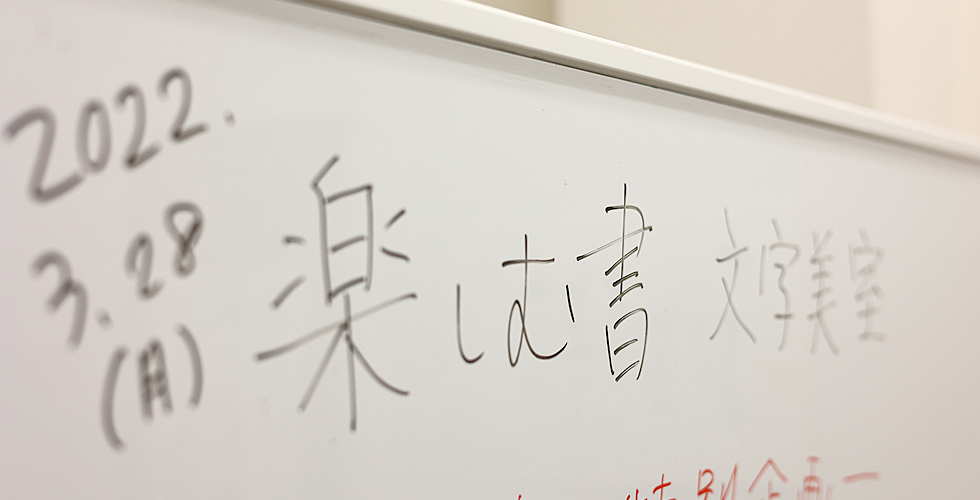 2022.
3.28
(月)
楽しむ書 文字美室
特別企画ー